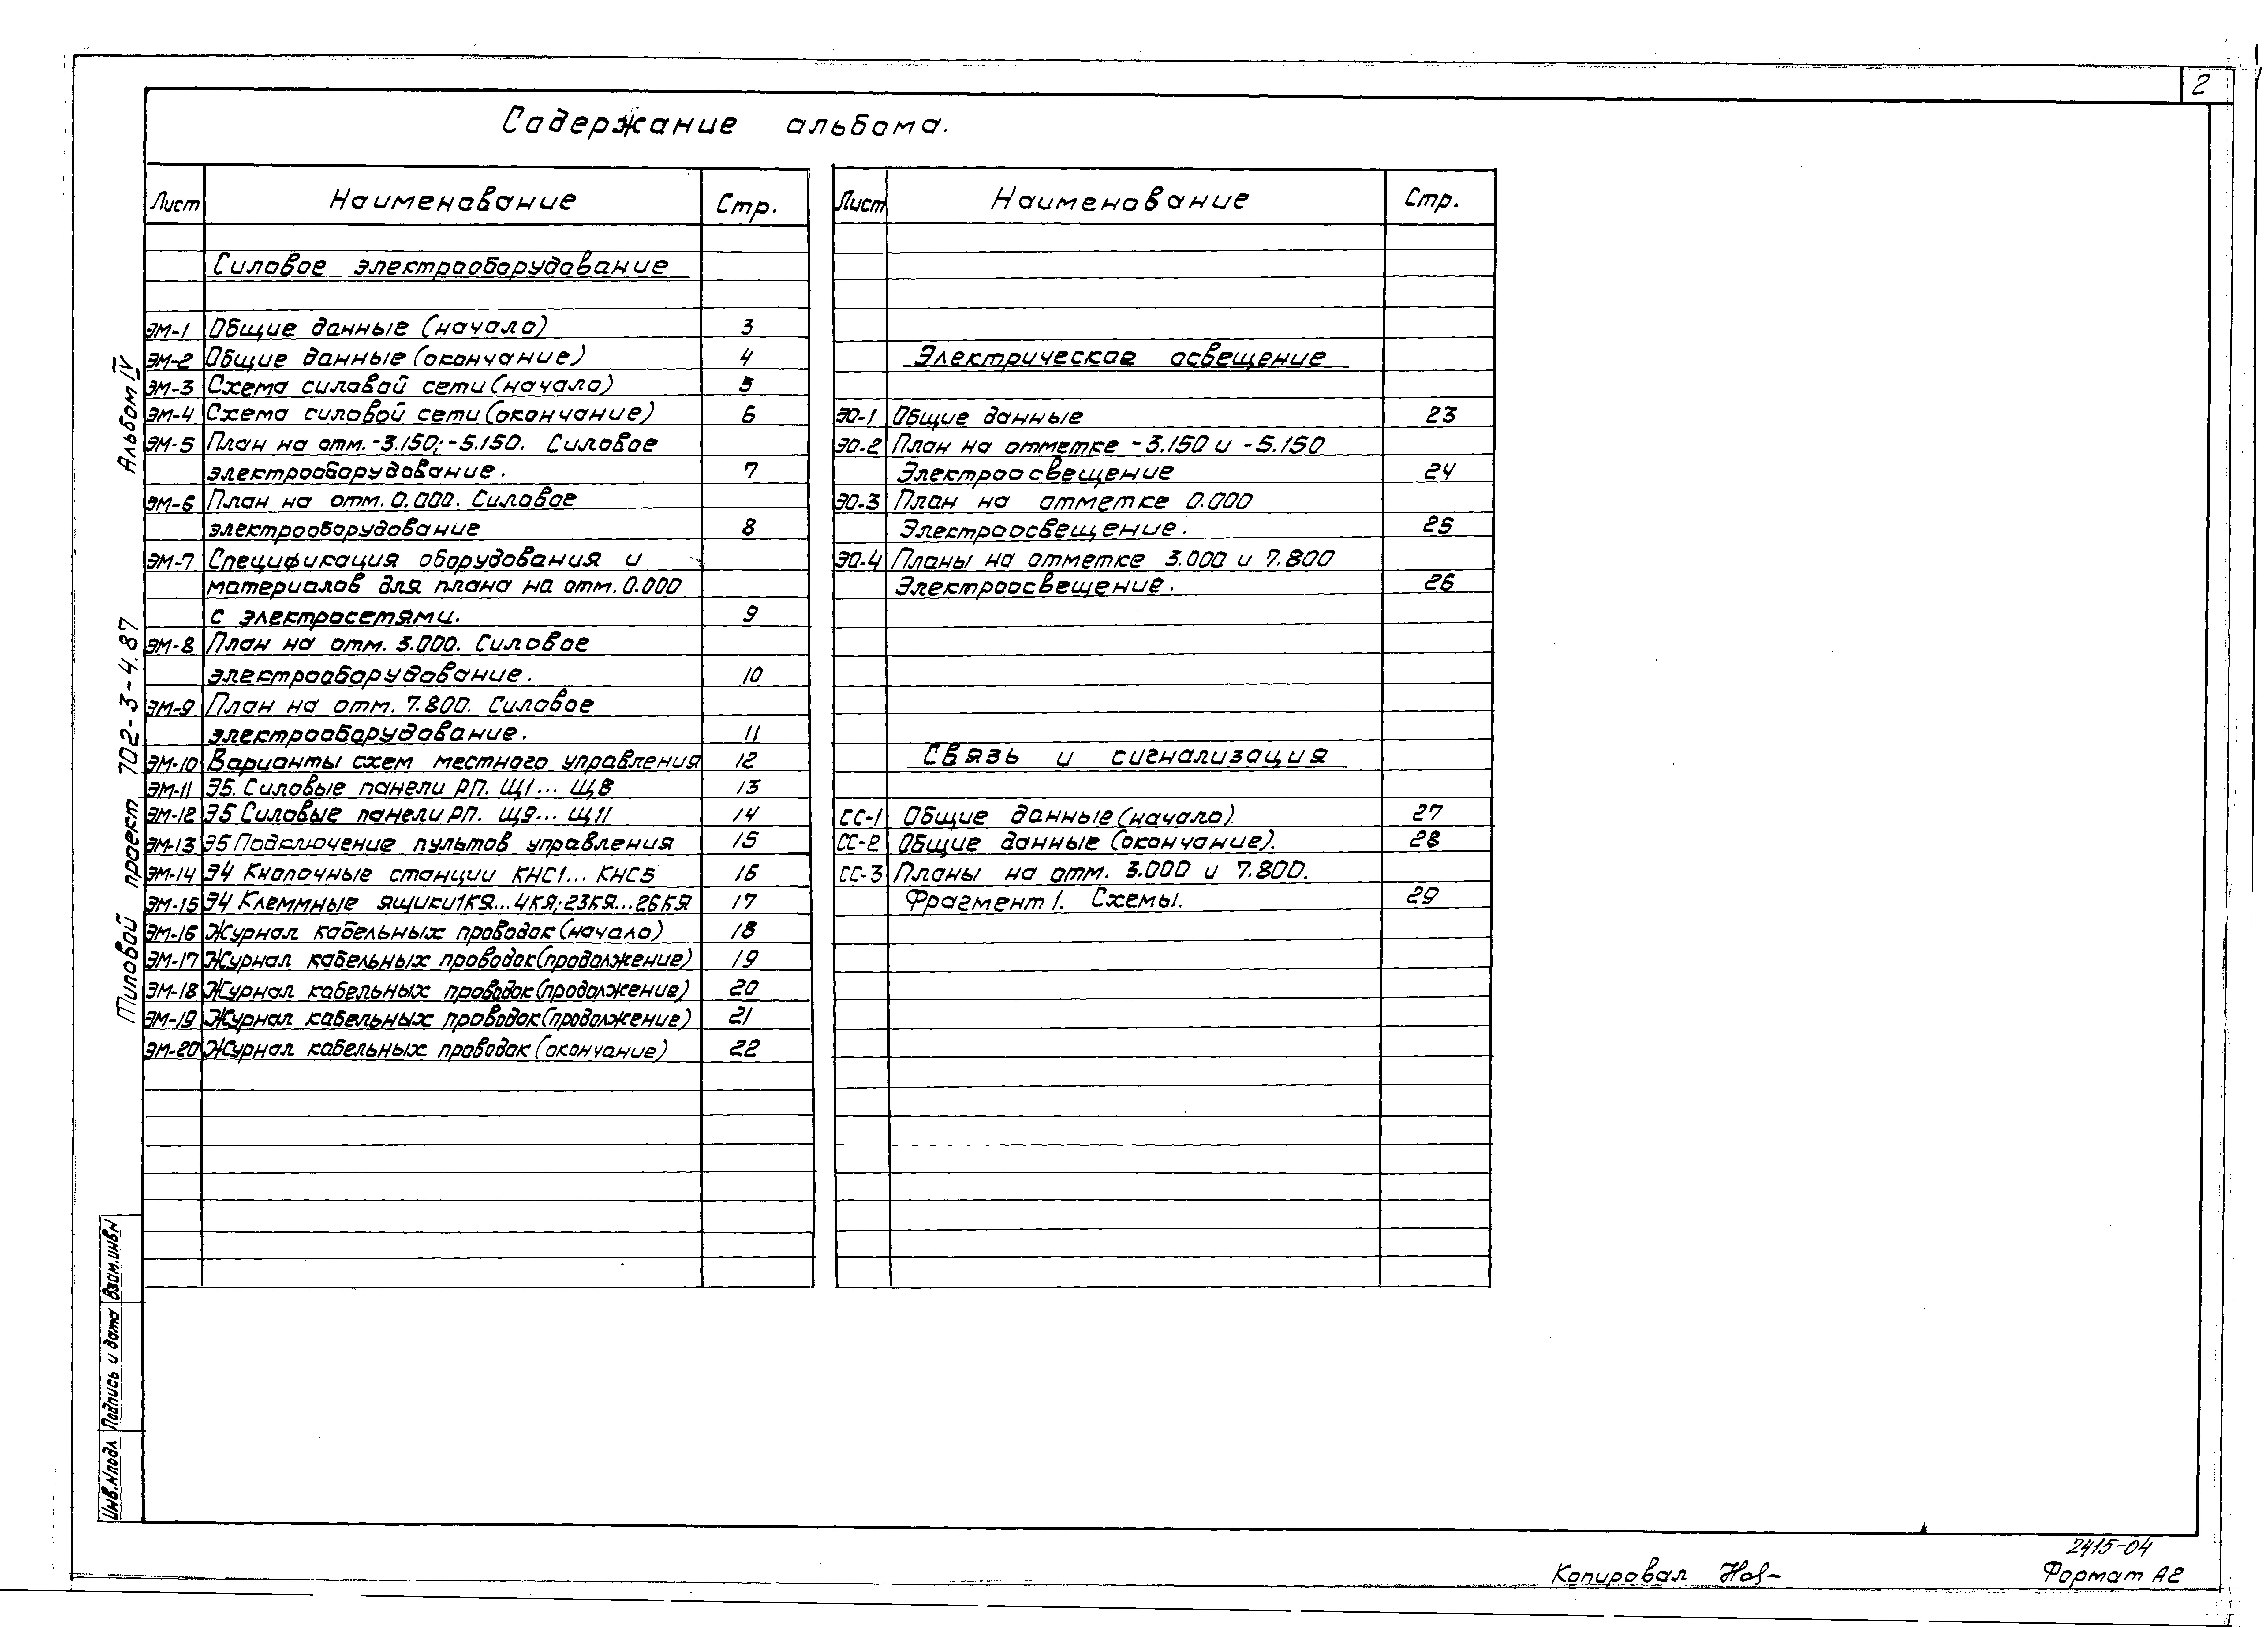 2
Содержание альбома.
Лист Наименование Стр.
Силовое электрооборудование
ЭМ-1 Общие данные (начало) 3
ЭМ-2 Общие данные (окончание) 4
ЭМ-3 Схема силовой сети (начало) 5
ЭМ-4 Схема силовой сети (окончание) 6
ЭМ-5 План на отм. -3.150; -5.150. Силовое
электрооборудование. 7
ЭМ-6 План на отм. 0.000. Силовое
электрооборудование 8
ЭМ-7 Спецификация оборудования и
материалов для плана на отм. 0.000
с электросетями. 9
ЭМ-8 План на отм. 3.000. Силовое
электрооборудование. 10
ЭМ-9 План на отм. 7.800. Силовое
электрооборудование. 11
ЭМ-10 Варианты схем местного управления 12
ЭМ-11 Э5. Силовые панели РП. Щ1... Щ8 13
ЭМ-12 Э5 Силовые панели РП. Щ9... Щ11 14
ЭМ-13 Э5 Подключение пультов управления 15
ЭМ-14 Э4 Кнопочные станции КНС1... КНС5 16
ЭМ-15 Э4 Клеммные ящики 1КЯ... 4КЯ; 23КЯ... 26КЯ 17
ЭМ-16 Журнал кабельных проводок (начало) 18
ЭМ-17 Журнал кабельных проводок (продолжение) 19
ЭМ-18 Журнал кабельных проводок (продолжение) 20
ЭМ-19 Журнал кабельных проводок (продолжение) 21
ЭМ-20 Журнал кабельных проводок (окончание) 22
Лист Наименование Стр.
Электрическое освещение
ЭО-1 Общие данные 23
ЭО-2 План на отметке -3.150 и -5.150
Электроосвещение 24
ЭО-3 План на отметке 0.000
Электроосвещение. 25
ЭО-4 Планы на отметке 3.000 и 7.800
Электроосвещение. 26
Связь и сигнализация
СС-1 Общие данные (начало). 27
СС-2 Общие данные (окончание). 28
СС-3 Планы на отм. 3.000 и 7.800.
Фрагмент 1. Схемы. 29
Типовой проект 702-3-4.87 Альбом IV
Инв.Nподл Подпись и дата Взам.инвN
2415-04
Копировал
Формат А2